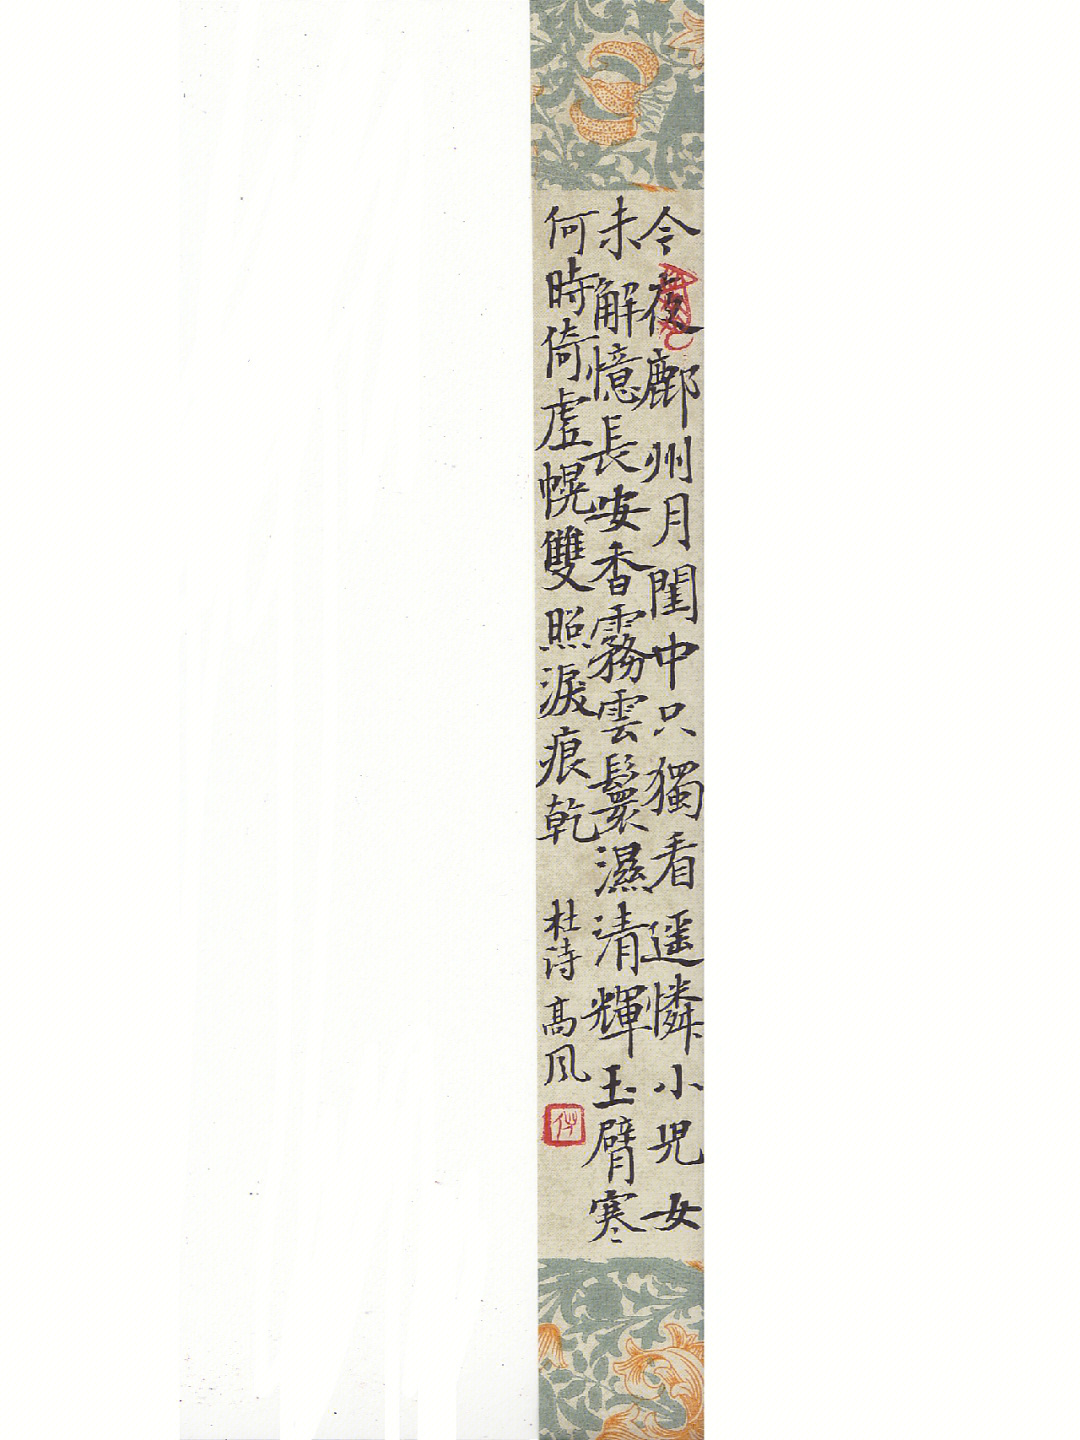 今夜鄜州月閨中只獨看遥憐小児女
未解憶長安香霧雲鬟濕清輝玉臂寒
何時倚虚幌雙照淚痕乾
杜詩 高风